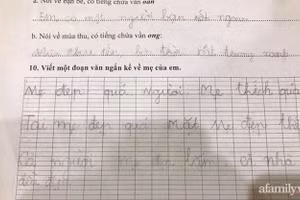 a. Nói về bạn bè, có tiếng chứa vần oan
Em có một người bạn rất ngoan
b. Nói về mùa thu, có tiếng chứa vần ong:
10. Viết một đoạn văn ngắn kể về mẹ của em.
Mẹ đẹp quá Người Mẹ thích quá
Tai mẹ đẹp quá Mắt Mẹ đẹp thế
Cả người mẹ đẹp lắm cả nhà
đều đẹp
afamily.vn